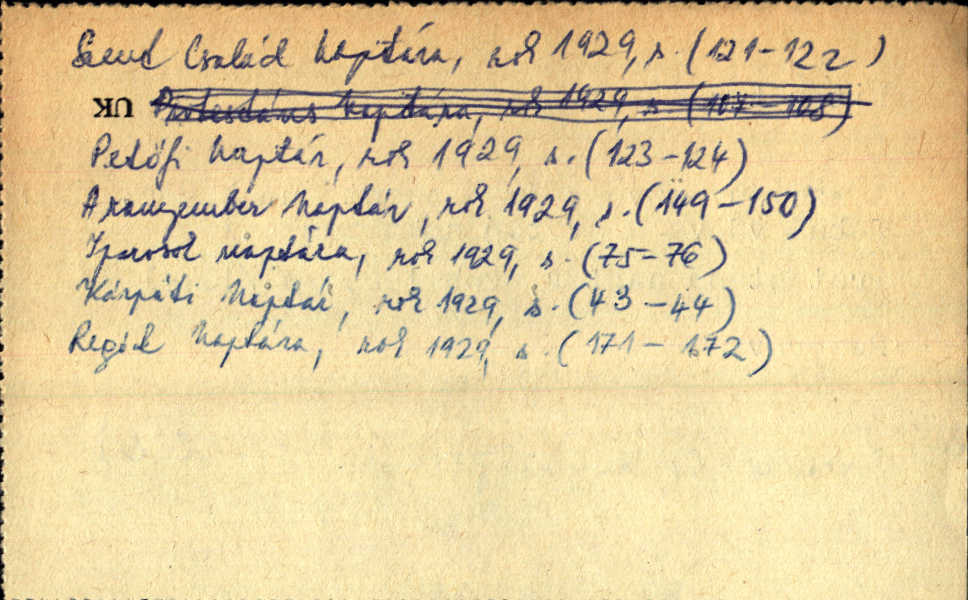 Szent Család Naptára, rok 1929, s. (121-122)
UK Protestáns Naptára, rok 1929, s. (107-108)
Petőfi Naptár, rok 1929, s. (123-124)
Aranyember Naptár, rok 1929, s. (149-150)
Iparosok naptára, rok 1929, s. (75-76)
Kárpáti Naptár, rok 1929, s. (43-44)
Regék Naptára, rok 1929, s. (171-172)